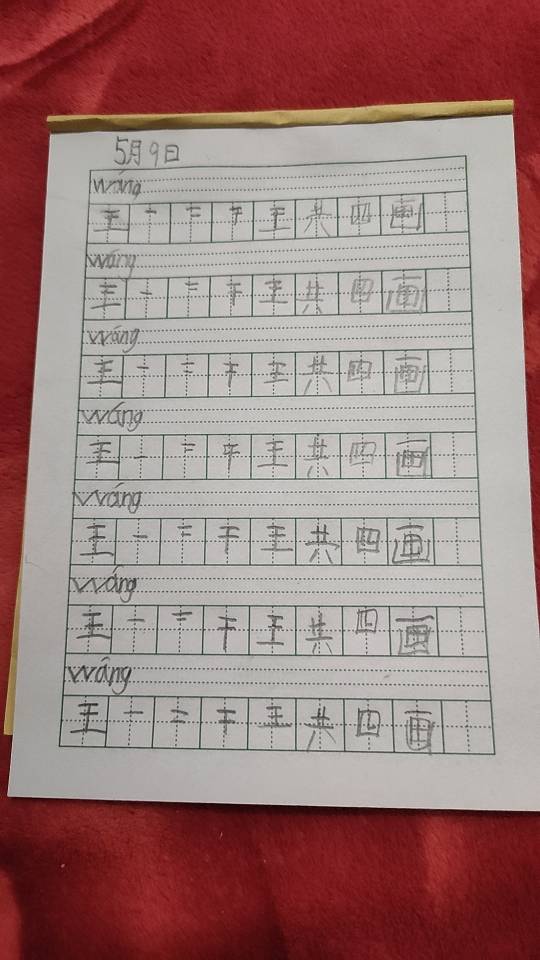 5月9日
wáng
王 一 二 干 王 共 四 画
wáng
王 一 二 干 王 共 四 画
wáng
王 一 二 干 王 共 四 画
wáng
王 一 二 干 王 共 四 画
wáng
王 一 二 干 王 共 四 画
wáng
王 一 二 干 王 共 四 画
wáng
王 一 二 干 王 共 四 画